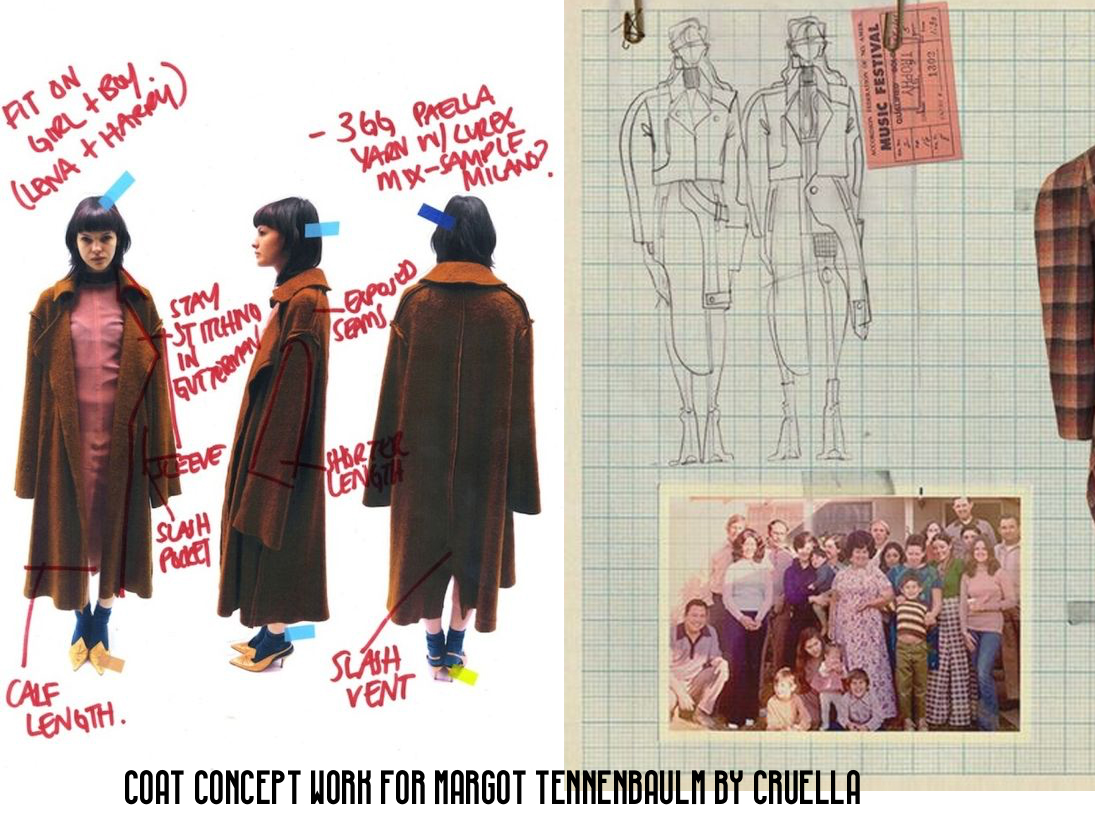 FIT ON
GIRL + BOY.
(LENA + HARRY)
- 3GG PAELLA
YARN W/ LUREX
MIX-SAMPLE
MILANO?
STAY
STITCHING
IN
GUTTERMAN
- EXPOSED
SEAMS.
SLEEVE
SHORTER
LENGTH
SLASH
POCKET
CALF
LENGTH.
SLASH
VENT
ACCORDION FEDERATION OF NO. AMER.
MUSIC FESTIVAL
TROPHY
1302
COAT CONCEPT WORK FOR MARGOT TENNENBAULM BY CRUELLA